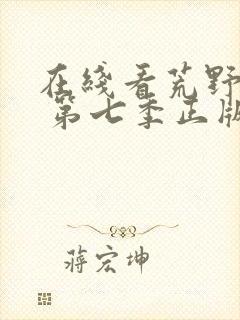 在綫看荒野
第七季正版
蔣宏坤